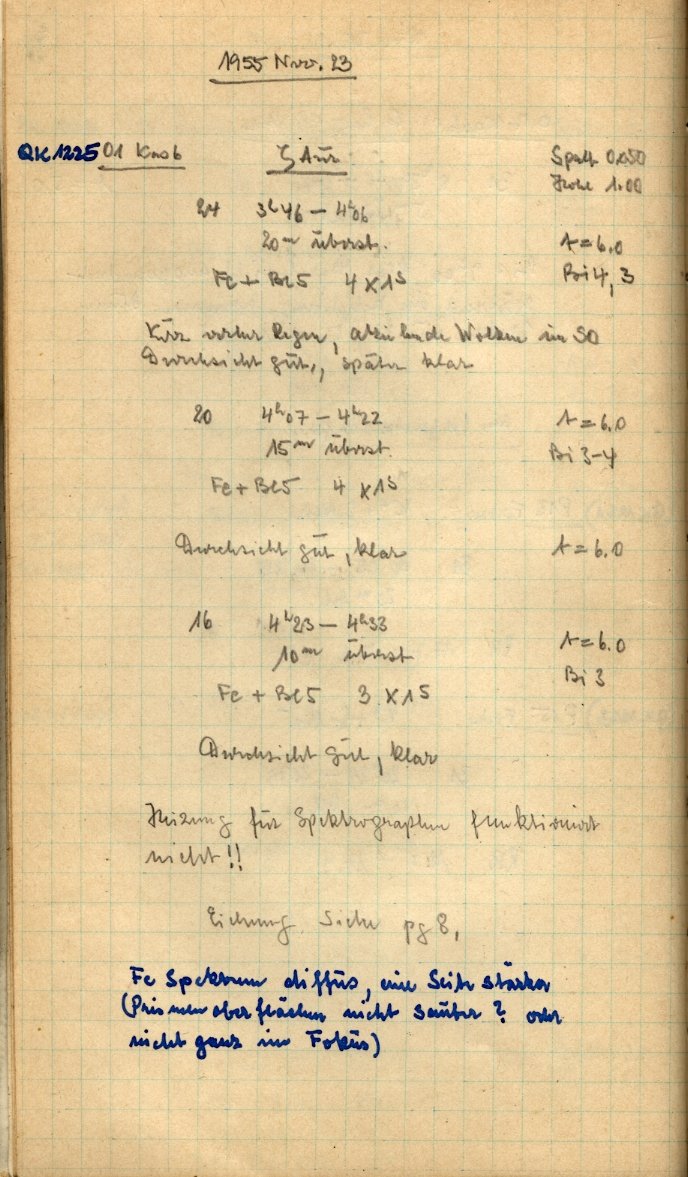 1955 Nov. 23
QK1225 01 Kasb ζ Aur Spalt 0.050
Höhe 1.00
24 3h46 – 4h06
20m überst. A = 6.0
Fe + Be5 4 x 1s Bi 4, 3
Kurz vorher Regen, abziehende Wolken im SO
Durchsicht gut, später klar
20 4h07 – 4h22 A = 6.0
15m überst. Bi 3-4
Fe + Be5 4 x 1s
Durchsicht gut, klar A = 6.0
16 4h23 – 4h33 A = 6.0
10m überst Bi 3
Fe + Be5 3 x 1s
Durchsicht gut, klar
Heizung für Spektrographen funktioniert
nicht!!
Eichung Siehe pg 8,
Fe Spektrum diffus, eine Seite stärker
(Prismenoberflächen nicht sauber? oder
nicht ganz im Fokus)